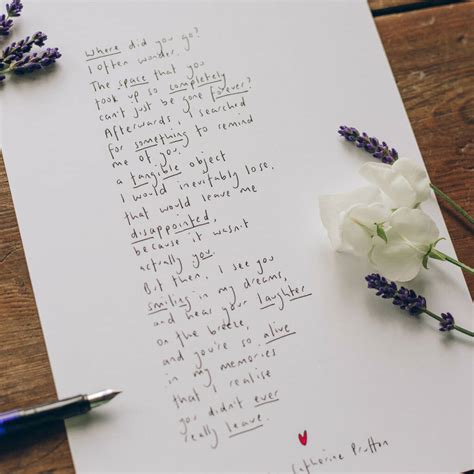 Where did you go?
I often wonder.
The space that you
took up so completely
can't just be gone forever?
Afterwards, I searched
for something to remind
me of you.
a tangible object
I would inevitably lose,
that would leave me
disappointed,
because it wasn't
actually you.
But then, I see you
smiling in my dreams,
and hear your laughter
on the breeze,
and you're so alive
in my memories
that I realise
you didn't ever
really leave.
Catherine Prutton